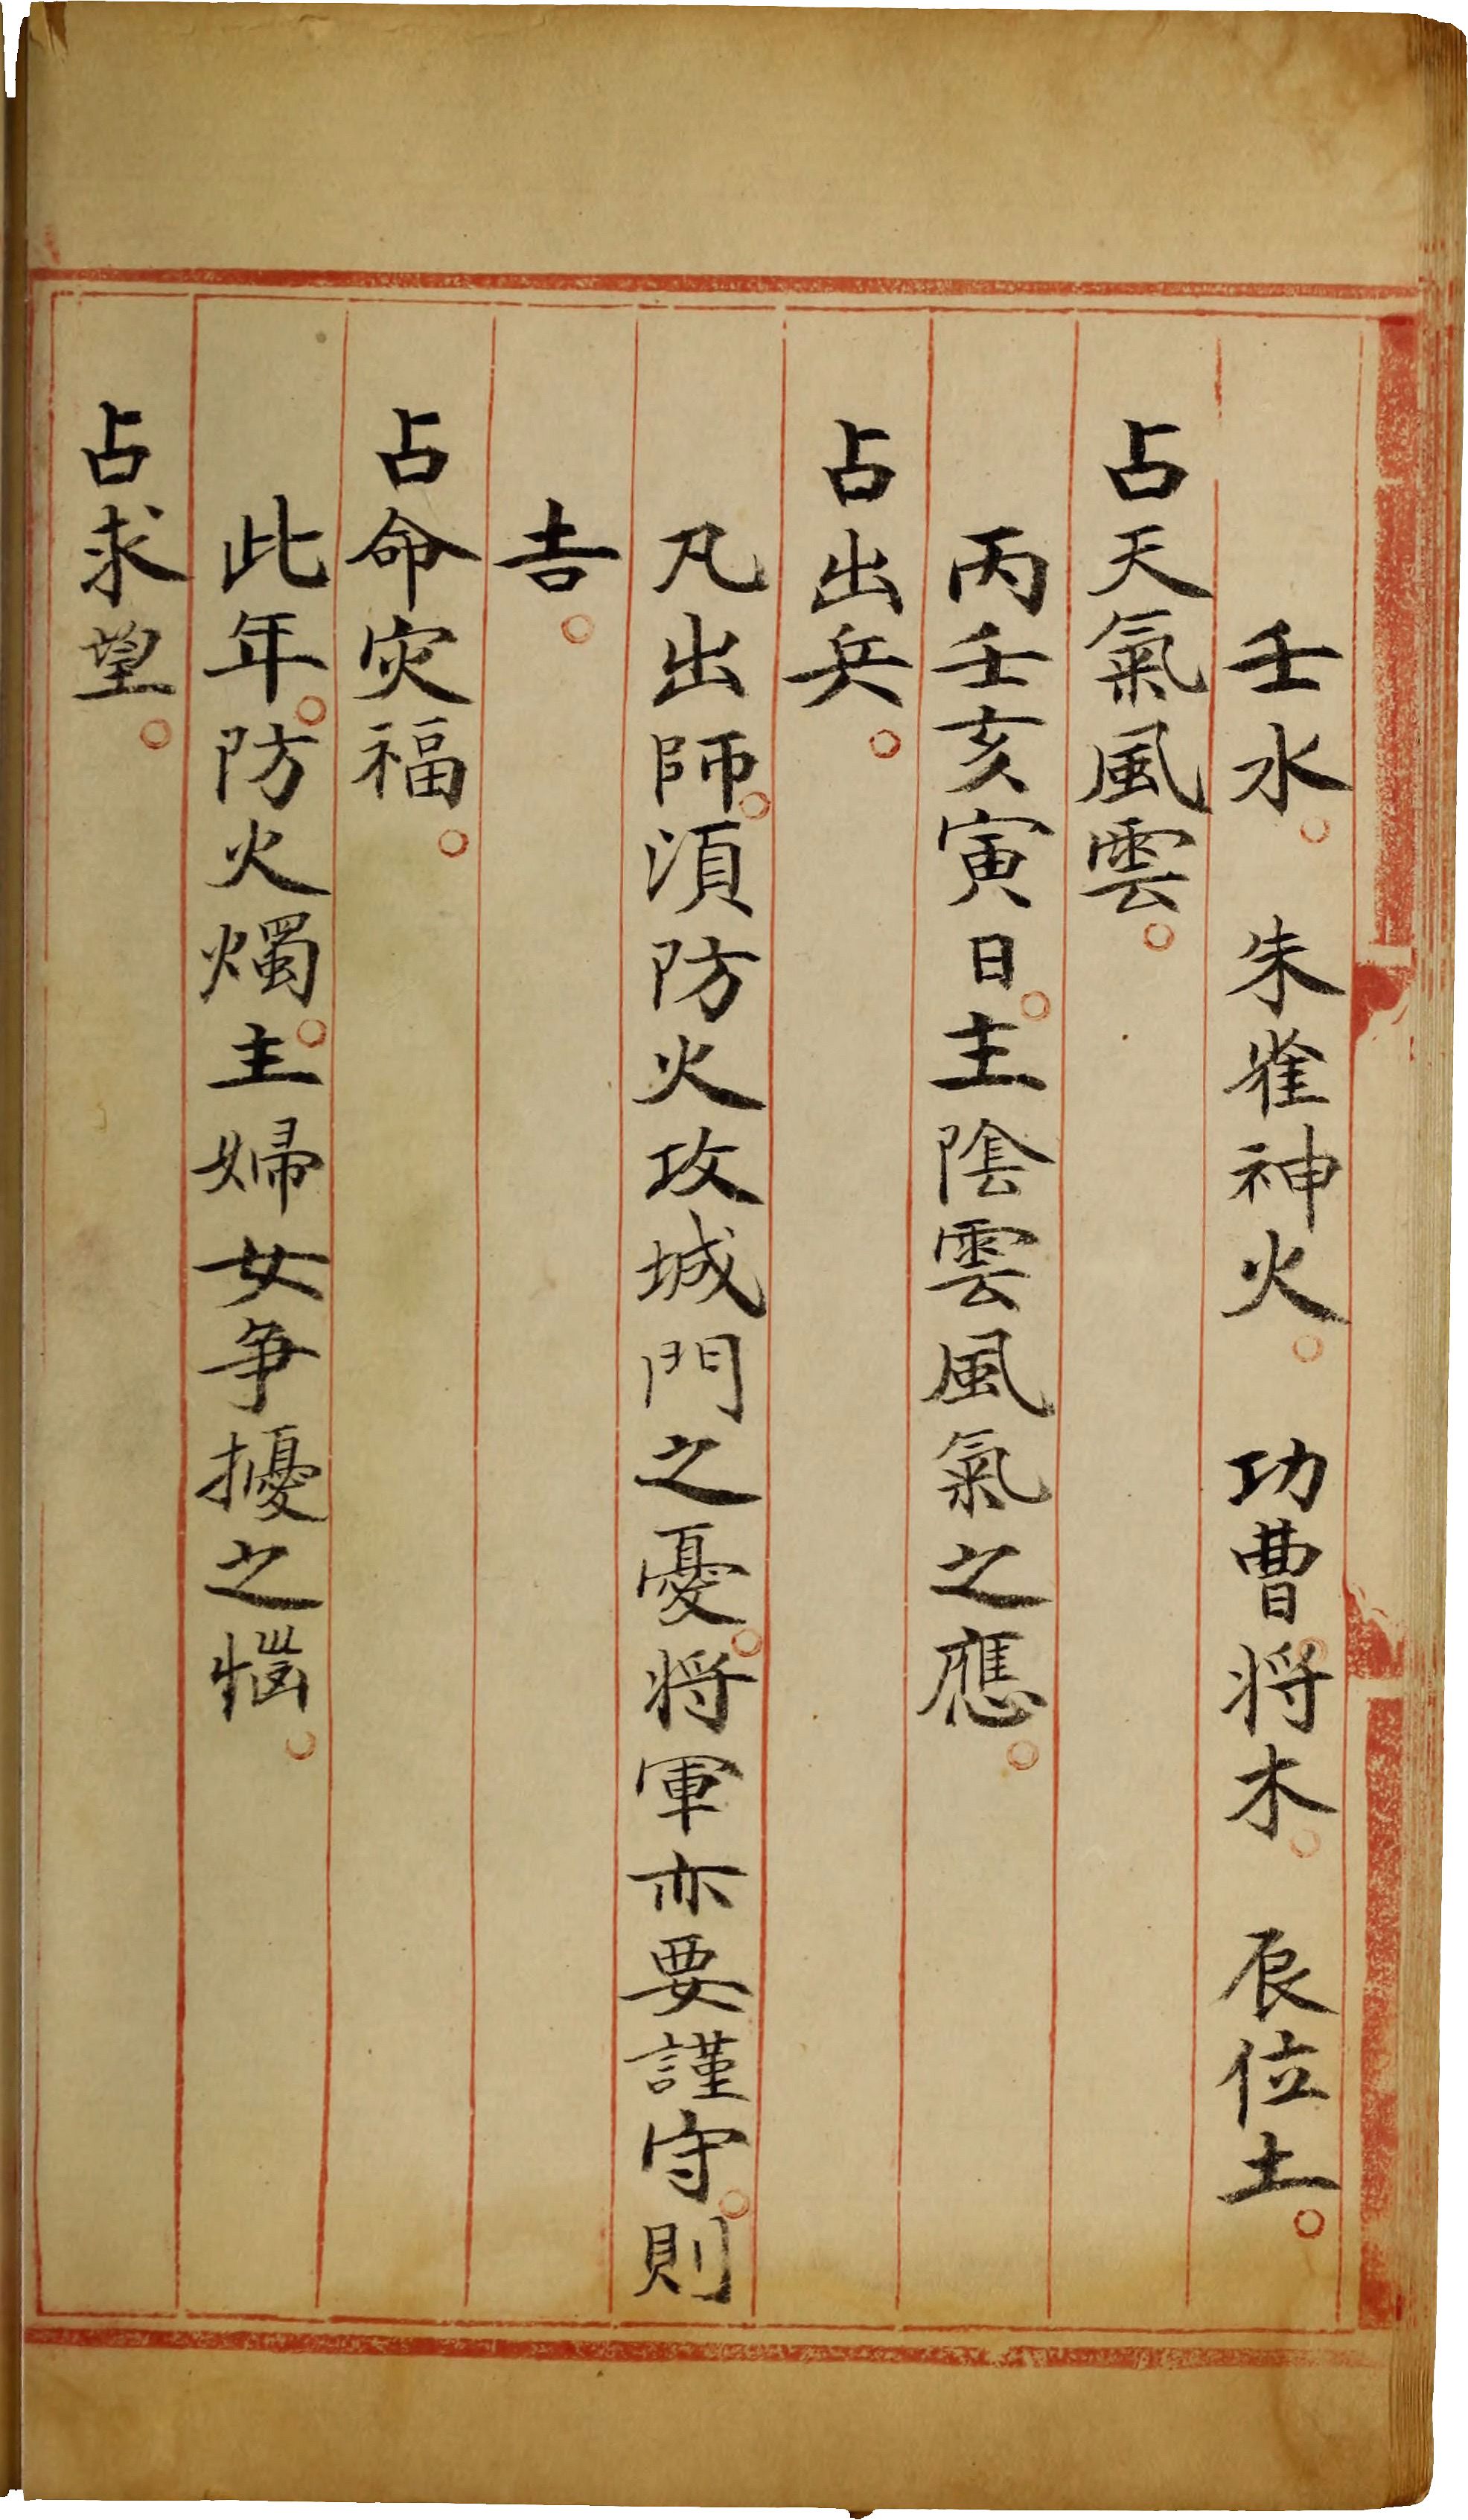 壬水。朱雀神火。功曹。将木。辰位土。
占天氣風雲。
丙壬亥寅日。主陰雲風氣之應。
占出兵。
凡出師。湏防火攻城門之憂。将軍亦要謹守。則
吉。
占命灾福。
此年。防火燭。主婦女争擾之惱。
占求望。